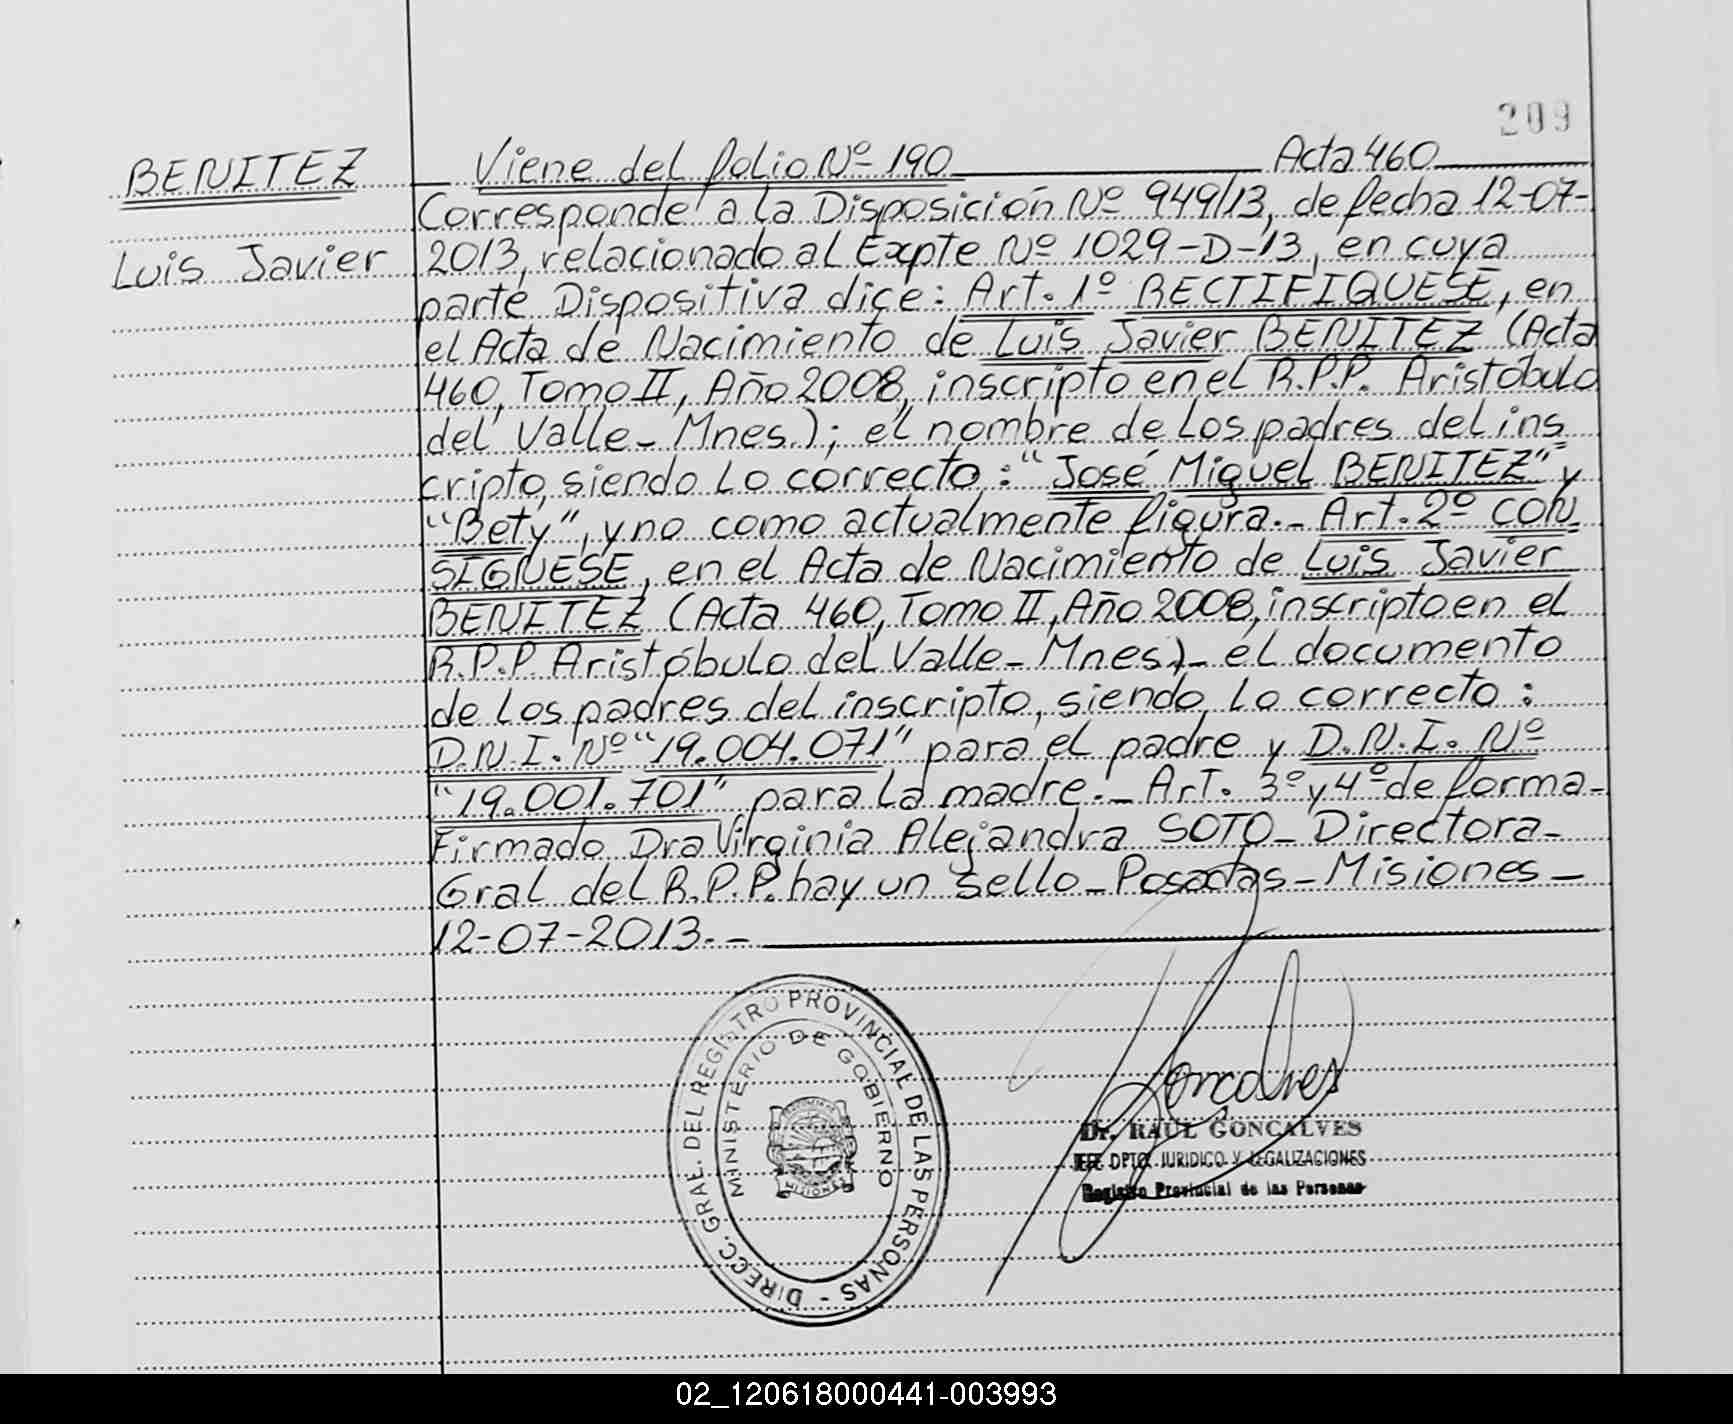 209
BENITEZ
Luis Javier
Viene del folio Nº 190 Acta 460
Corresponde a la Disposición Nº 949/13, de fecha 12-07-
2013, relacionado al Expte Nº 1029-D-13, en cuya
parte Dispositiva dice: Art. 1º RECTIFIQUESE, en
el Acta de Nacimiento de Luis Javier BENITEZ (Acta
460, Tomo II, Año 2008, inscripto en el R.P.P. Aristóbulo
del Valle- Mnes.); el nombre de los padres del ins
cripto, siendo lo correcto: "José Miguel BENITEZ" y
"Bety", y no como actualmente figura.- Art. 2º CON
SIGNESE, en el Acta de Nacimiento de Luis Javier
BENITEZ (Acta 460, Tomo II, Año 2008, inscripto en el
R.P.P Aristóbulo del Valle- Mnes)- el documento
de los padres del inscripto, siendo lo correcto:
D.N.I. Nº "19.004.071" para el padre y D.N.I. Nº
"19.001.701" para la madre.- Art. 3º y 4º de forma-
Firmado Dra Virginia Alejandra SOTO- Directora-
Gral del R.P.P. hay un sello- Posadas- Misiones-
12-07-2013.-
DIRECC. GRAL. DEL REGISTRO PROVINCIAL DE LAS PERSONAS -
MINISTERIO DE GOBIERNO
MISIONES
Goncalves
Dr. RAUL GONCALVES
DPTO. JURIDICO Y LEGALIZACIONES
Registro Provincial de las Personas
02_120618000441-003993